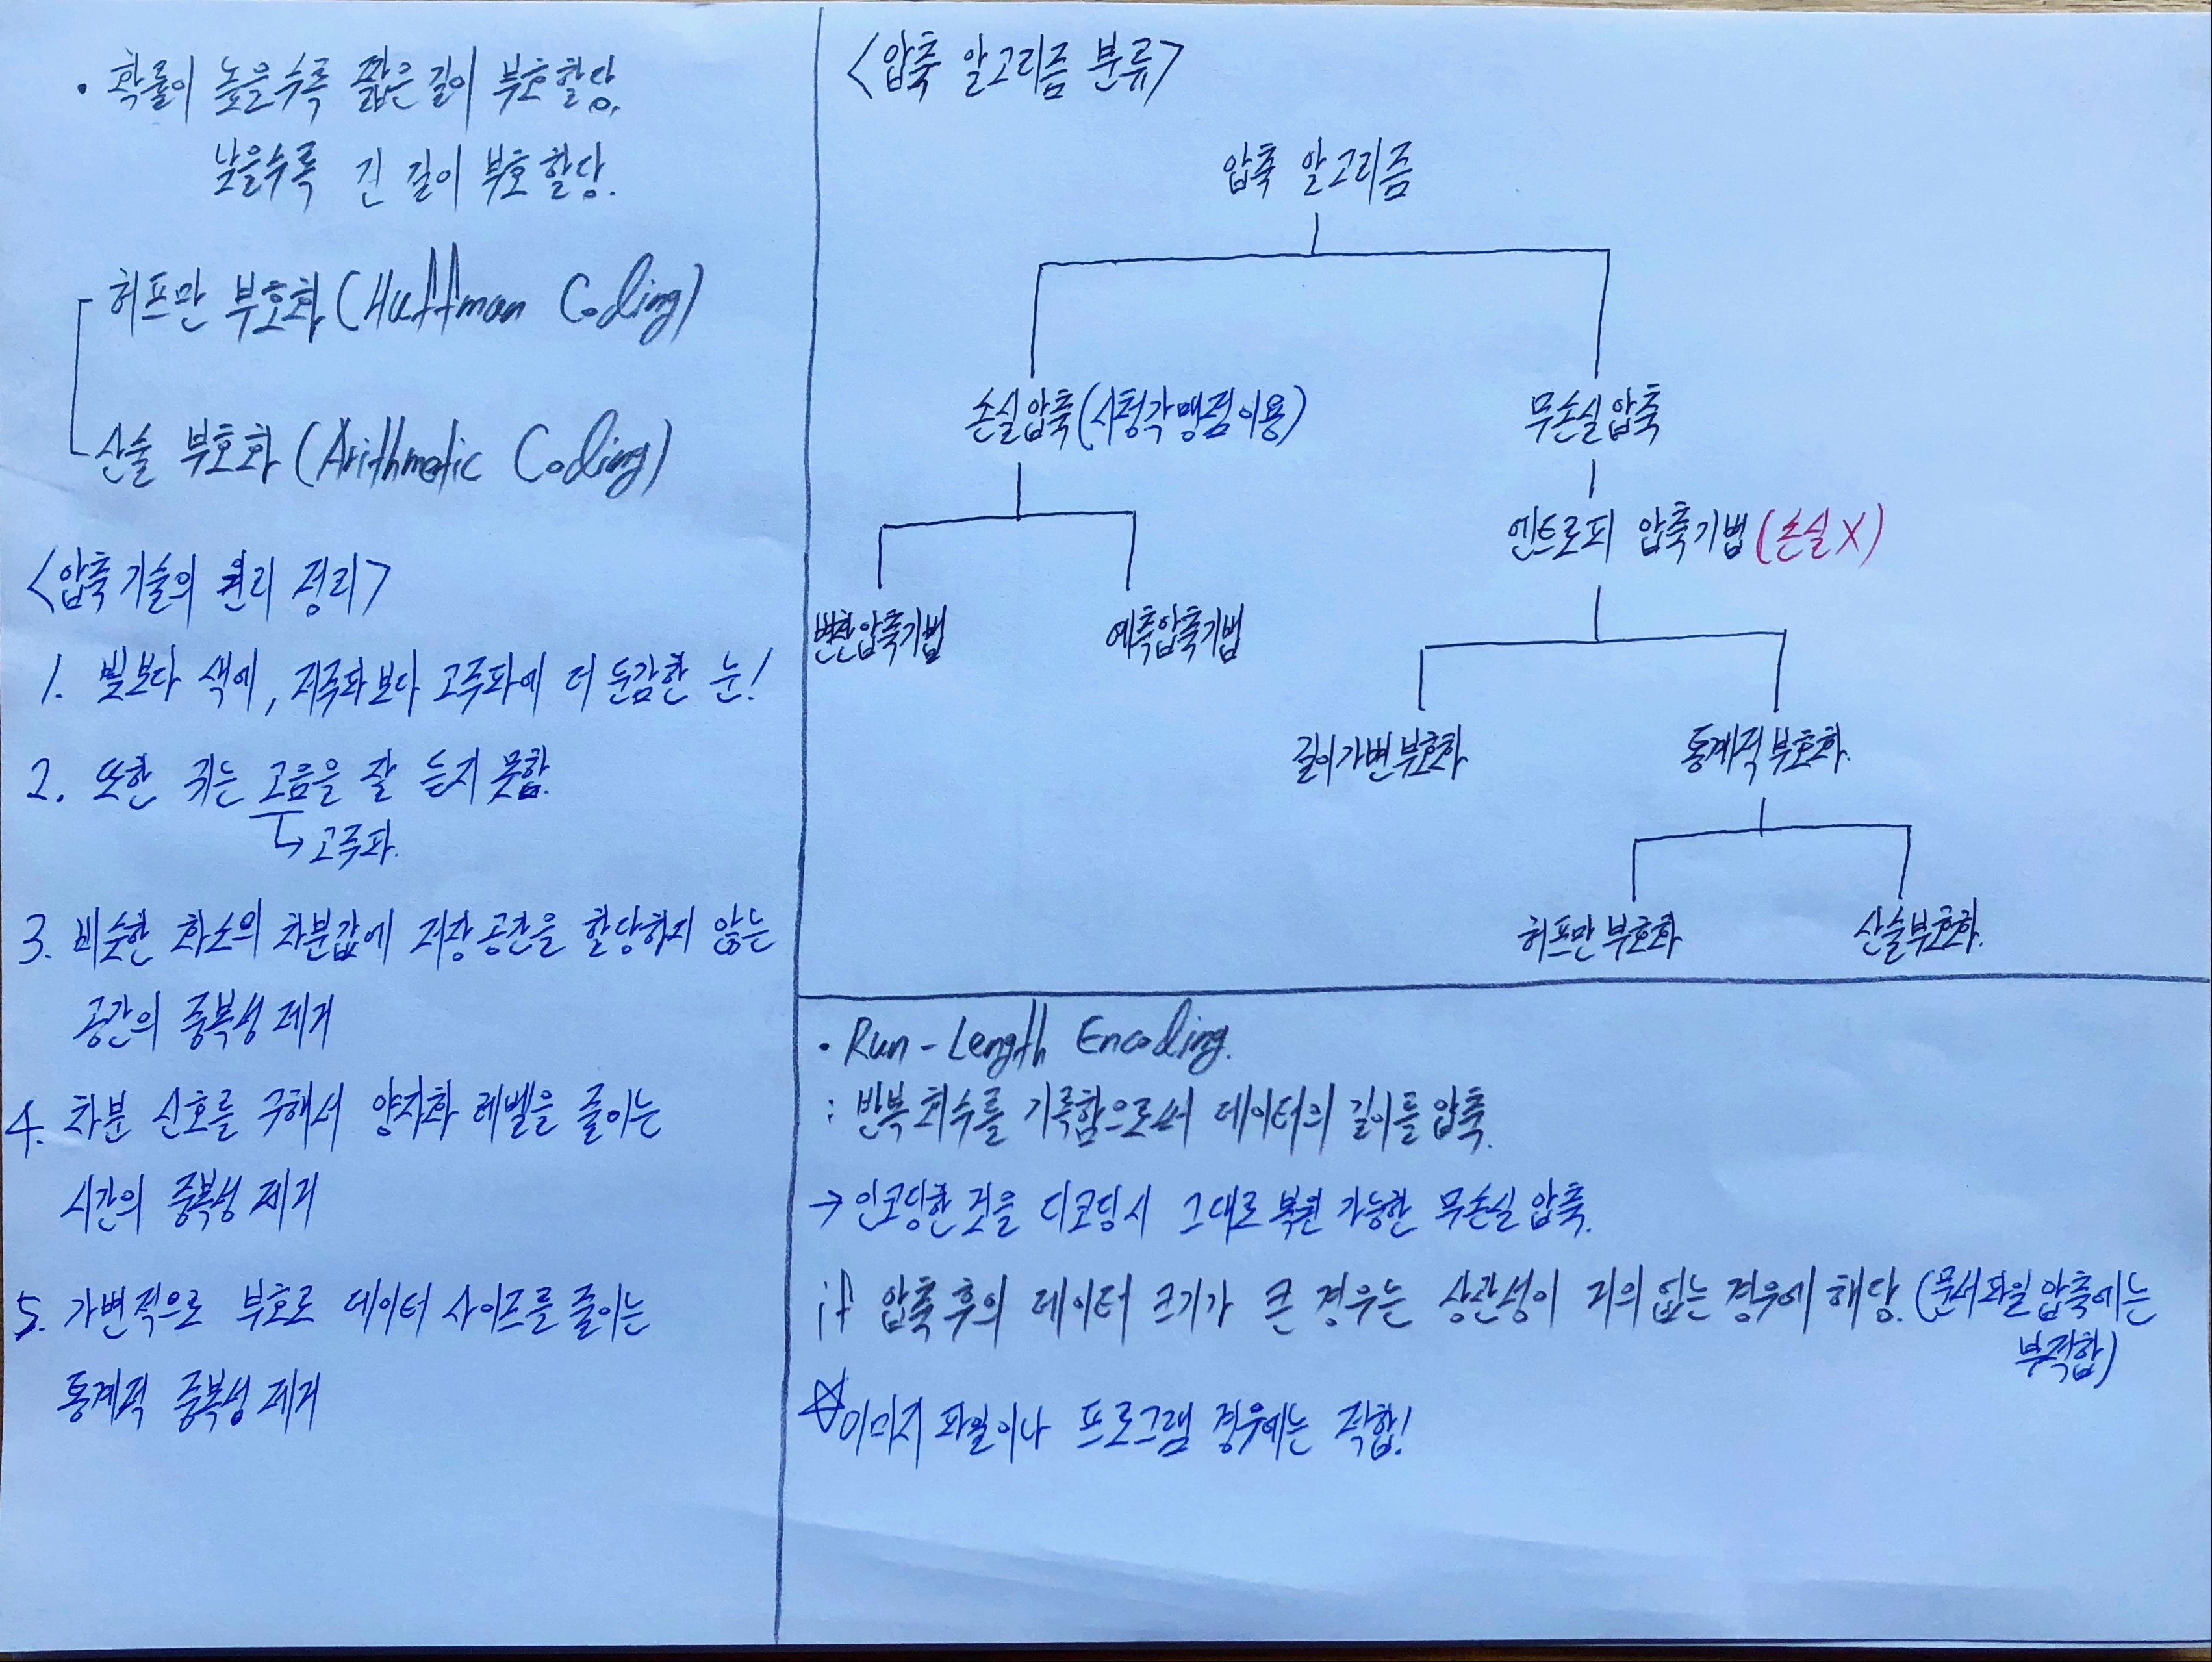 • 확률이 높을수록 짧은 길이 부호할당,
낮을수록 긴 길이 부호할당.
허프만 부호화 (Huffman Coding)
산술 부호화 (Arithmetic Coding)
<압축기술의 원리 정리>
1. 빛보다 색에, 저주파보다 고주파에 더 둔감한 눈!
2. 또한 귀는 고음을 잘 듣지 못함.
↳ 고주파.
3. 비슷한 화소의 차분값에 저장공간을 할당하지 않는
공간의 중복성 제거
4. 차분 신호를 구해서 양자화 레벨을 줄이는
시간의 중복성 제거
5. 가변적으로 부호로 데이터 사이즈를 줄이는
통계적 중복성 제거
<압축 알고리즘 분류>
압축 알고리즘
손실압축(시청각맹점이용)
무손실압축
엔트로피 압축기법 (손실X)
변환압축기법
예측압축기법
길이가변부호화
통계적부호화.
허프만부호화
산술부호화.
• Run-Length Encoding.
: 반복 회수를 기록함으로써 데이터의 길이를 압축.
→ 인코딩한 것을 디코딩시 그대로 복원 가능한 무손실 압축.
if 압축 후의 데이터 크기가 큰 경우는 상관성이 거의 없는 경우에 해당. (문서파일 압축에는
부적합)
☆이미지 파일이나 프로그램 경우에는 적합!